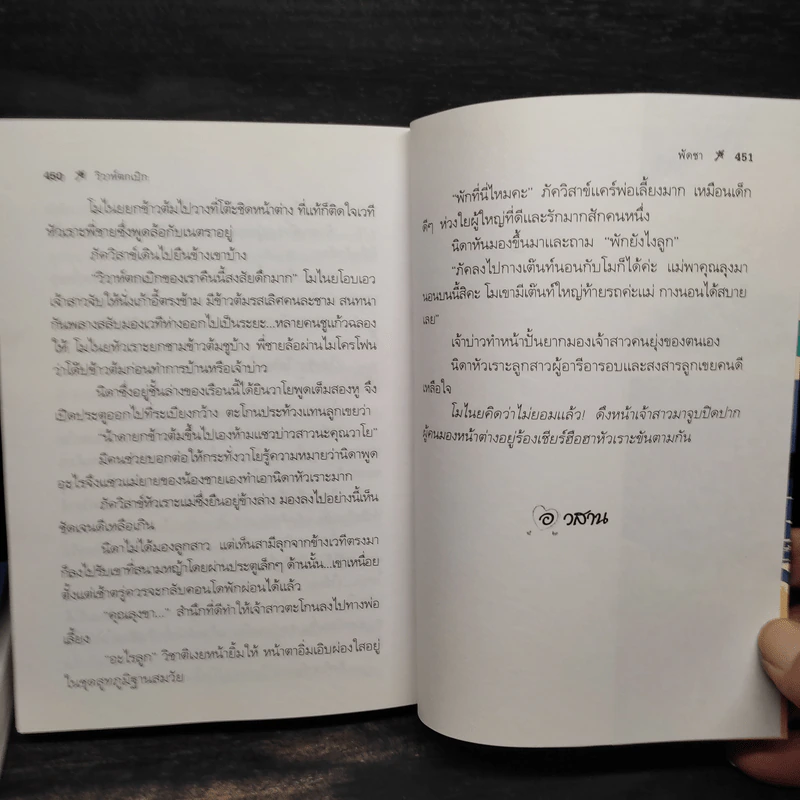 450 วิวาห์ตกเบิก
โมไนยยกข้าวต้มไปวางที่โต๊ะชิดหน้าต่าง ที่แท้ก็ติดใจเวที
หัวเราะพี่ชายซึ่งพูดล้อกับเนตราอยู่
ภัควิสาข์เดินไปยืนข้างเขาบ้าง
“วิวาห์ตกเบิกของเราคืนนี้สงสัยดึกมาก” โมไนยโอบเอว
เจ้าสาวจับให้นั่งเก้าอี้ตรงข้าม มีข้าวต้มรสเลิศคนละชาม สนทนา
กันพลางสลับมองเวทีห่างออกไปเป็นระยะ...หลายคนชูแก้วฉลอง
ให้ โมไนยหัวเราะยกชามข้าวต้มชูบ้าง พี่ชายล้อผ่านไมโครโฟน
ว่าโด๊ปข้าวต้มก่อนทำการบ้านหรือเจ้าบ่าว
นิดาซึ่งอยู่ชั้นล่างของเรือนนี้ได้ยินวาโยพูดเต็มสองหู จึง
เปิดประตูออกไปที่ระเบียงกว้าง ตะโกนประท้วงแทนลูกเขยว่า
“น้าดายกข้าวต้มขึ้นไปเองห้ามแซวบ่าวสาวนะคุณวาโย”
มีคนช่วยบอกต่อให้กระทั่งวาโยรู้ความหมายว่านิดาพูด
อะไรจึงแซวแม่ยายของน้องชายเองทำเอานิดาหัวเราะมาก
ภัควิสาข์หัวเราะแม่ซึ่งยืนอยู่ข้างล่าง มองลงไปอย่างนี้เห็น
ชัดเจนดีเหลือเกิน
นิดาไม่ได้มองลูกสาว แต่เห็นสามีลุกจากข้างเวทีตรงมา
ก็ลงไปรับเขาที่สนามหญ้าโดยผ่านประตูเล็กๆ ด้านนั้น...เขาเหนื่อย
ตั้งแต่เช้าตรู่ควรจะกลับคอนโดพักผ่อนได้แล้ว
“คุณลุงขา...” สำนึกที่ดีทำให้เจ้าสาวตะโกนลงไปทางพ่อ
เลี้ยง
“อะไรลูก” วิชาติเงยหน้ายิ้มให้ หน้าตาอิ่มเอิบผ่องใสอยู่
ในชุดสูทภูมิฐานสมวัย
พัดชา 451
“พักที่นี่ไหมคะ” ภัควิสาข์แคร์พ่อเลี้ยงมาก เหมือนเด็ก
ดีๆ ห่วงใยผู้ใหญ่ที่ดีและรักมากสักคนหนึ่ง
นิดาหันมองขึ้นมาและถาม “พักยังไงลูก”
“ภัคลงไปกางเต็นท์นอนกับโมก็ได้ค่ะ แม่พาคุณลุงมา
นอนบนนี้สิคะ โมเขามีเต็นท์ใหญ่ท้ายรถค่ะแม่ กางนอนได้สบาย
เลย”
เจ้าบ่าวทำหน้าปั้นยากมองเจ้าสาวคนยุ่งของตนเอง
นิดาหัวเราะลูกสาวผู้อารีอารอบและสงสารลูกเขยคนดี
เหลือใจ
โมไนยคิดว่าไม่ยอมแล้ว! ดึงหน้าเจ้าสาวมาจูบปิดปาก
ผู้คนมองหน้าต่างอยู่ร้องเชียร์ฮือฮาหัวเราะขันตามกัน
อวสาน